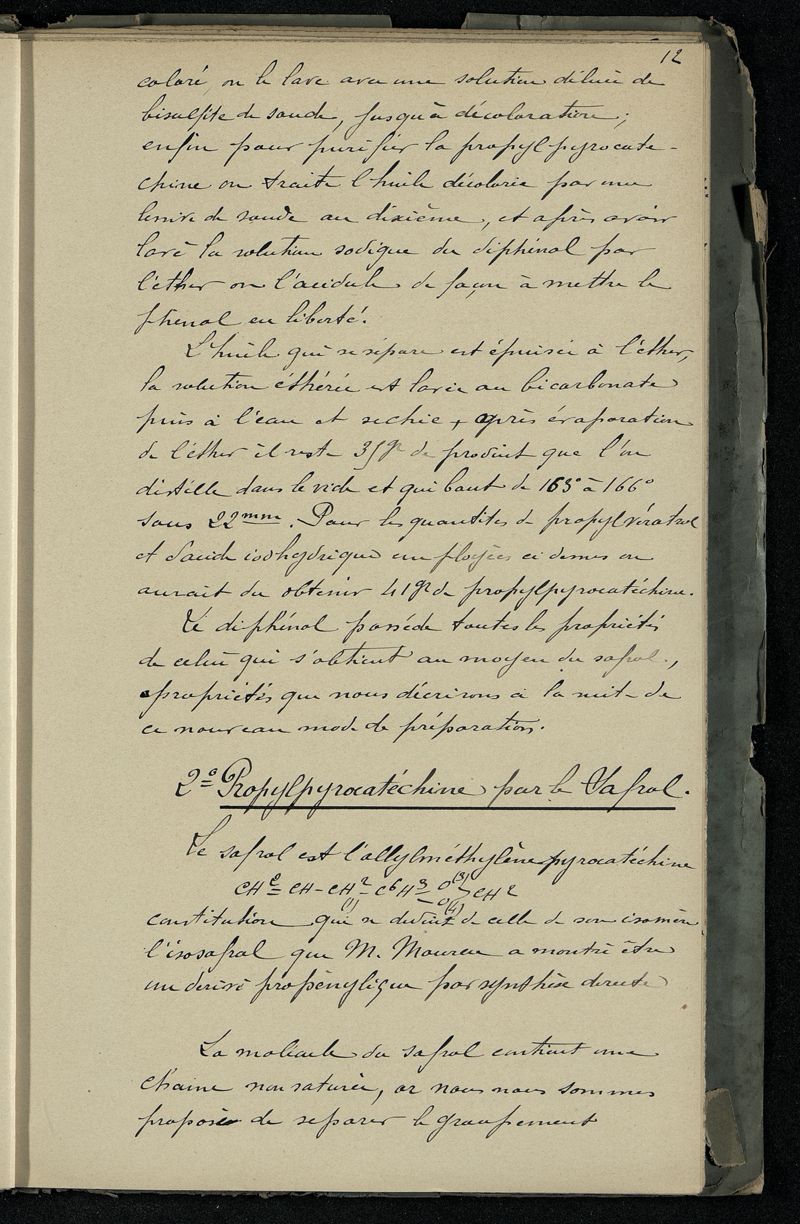 12
coloré, on le lave avec une solution diluée de
bisulfite de soude, jusqu'à décoloration;
enfin pour purifier la propylpyrocaté-
chine on traite l'huile décolorée par une
lessive de soude au dixième, et après avoir
lavé la solution sodique du diphénol par
l'éther on l'acidule de façon à mettre le
phénol en liberté.
L'huile qui se sépare est épuisée à l'éther,
la solution éthérée est lavée au bicarbonate
puis à l'eau et sechée, après évaporation
de l'éther il reste 35gr de produit que l'on
distille dans le vide et qui bout de 163° à 166°
sous 22mm. Pour les quantités de propylvératrol
et d'acide iodhydrique employées ci dessus on
aurait du obtenir 41gr de propylpyrocatéchine.
Ce diphénol possède toutes les propriétés
de celui qui s'obtient au moyen du safrol,
propriétés que nous décrirons à la suite de
ce nouveau mode de préparation.
2° Propylpyrocatéchine par le Safrol.
Le safrol est l'allylméthylène pyrocatéchine
CH2=CH-CH2-C6H3 -O(3) -O(4) >CH2
(1)
constitution qui se déduit de celle de son isomère
l'isosafrol que M. Moureu a montré être
un dérivé propénylique par synthèse directe
La molécule du safrol contient une
chaine non saturée, or nous nous sommes
proposé de separer le groupement